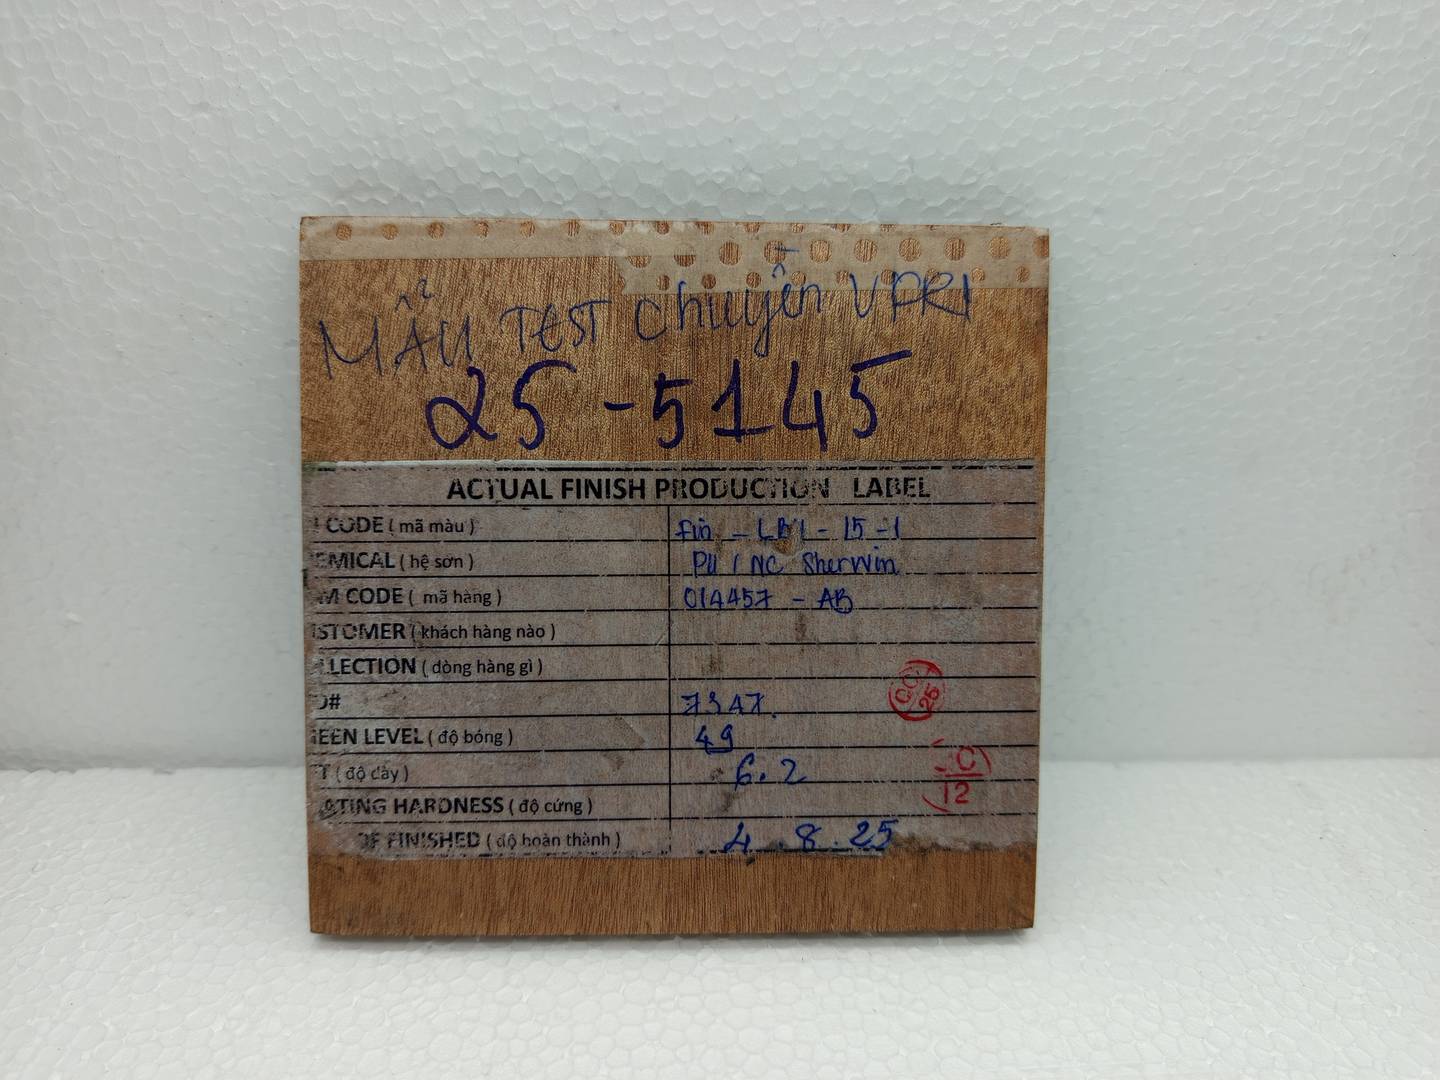 MẨU TEST Chuyền VPRI
25-5145
ACTUAL FINISH PRODUCTION LABEL
CODE ( mã màu ) Fin - LBI - 15 - 1
EMICAL ( hệ sơn ) PU / NC Sherwin
M CODE ( mã hàng ) 014457 - AB
STOMER ( khách hàng nào )
LLECTION ( dòng hàng gì )
O# 7347.
EEN LEVEL ( độ bóng ) 49
T ( độ dày ) 6.2
ATING HARDNESS ( độ cứng )
OF FINISHED ( độ hoàn thành ) 4.8.25
QC
25
C
12